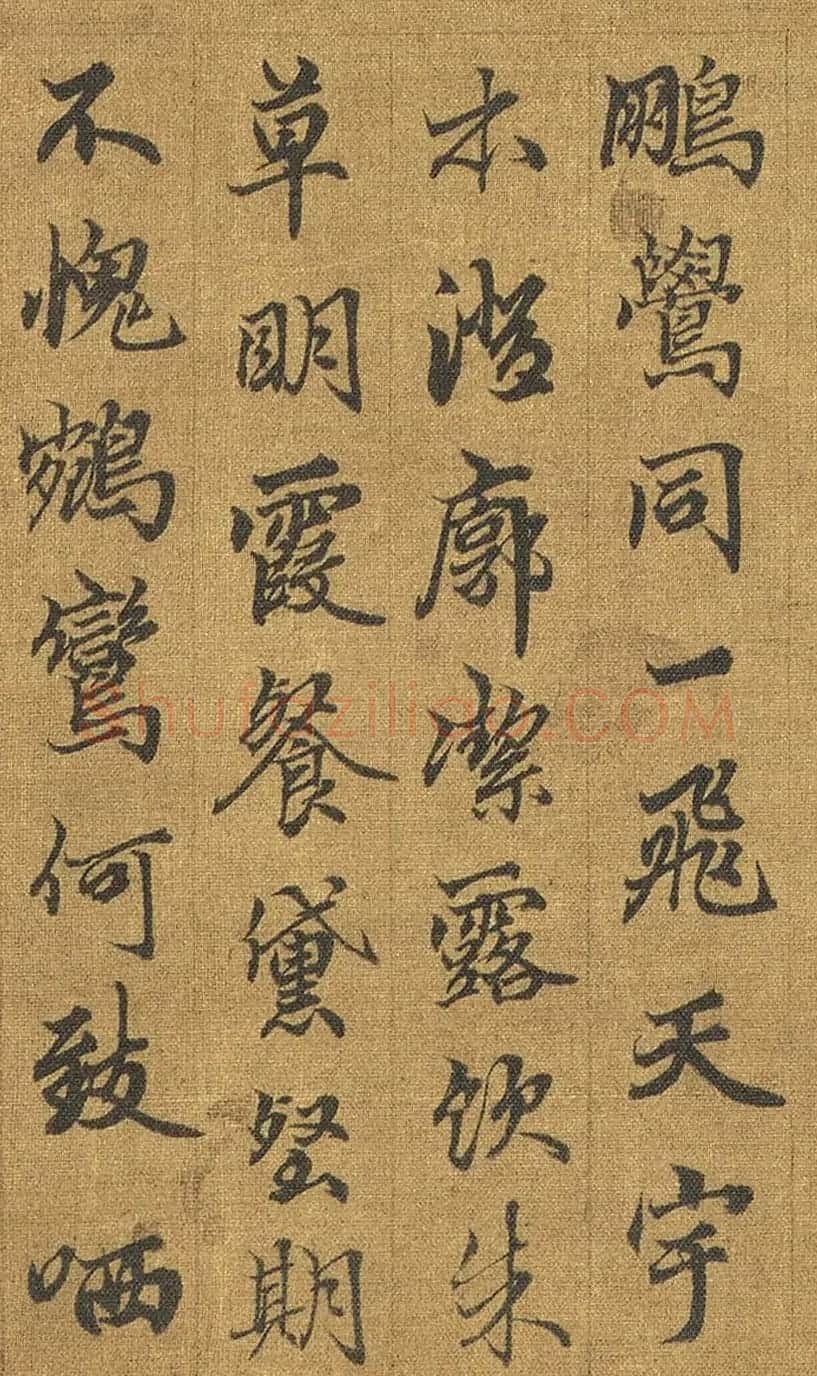 鵬鷽同一飛天宇
本澄廓潔露飲朱
草明霞餐黛壑期
不愧鵷鸞何致哂
shufaziliao.COM